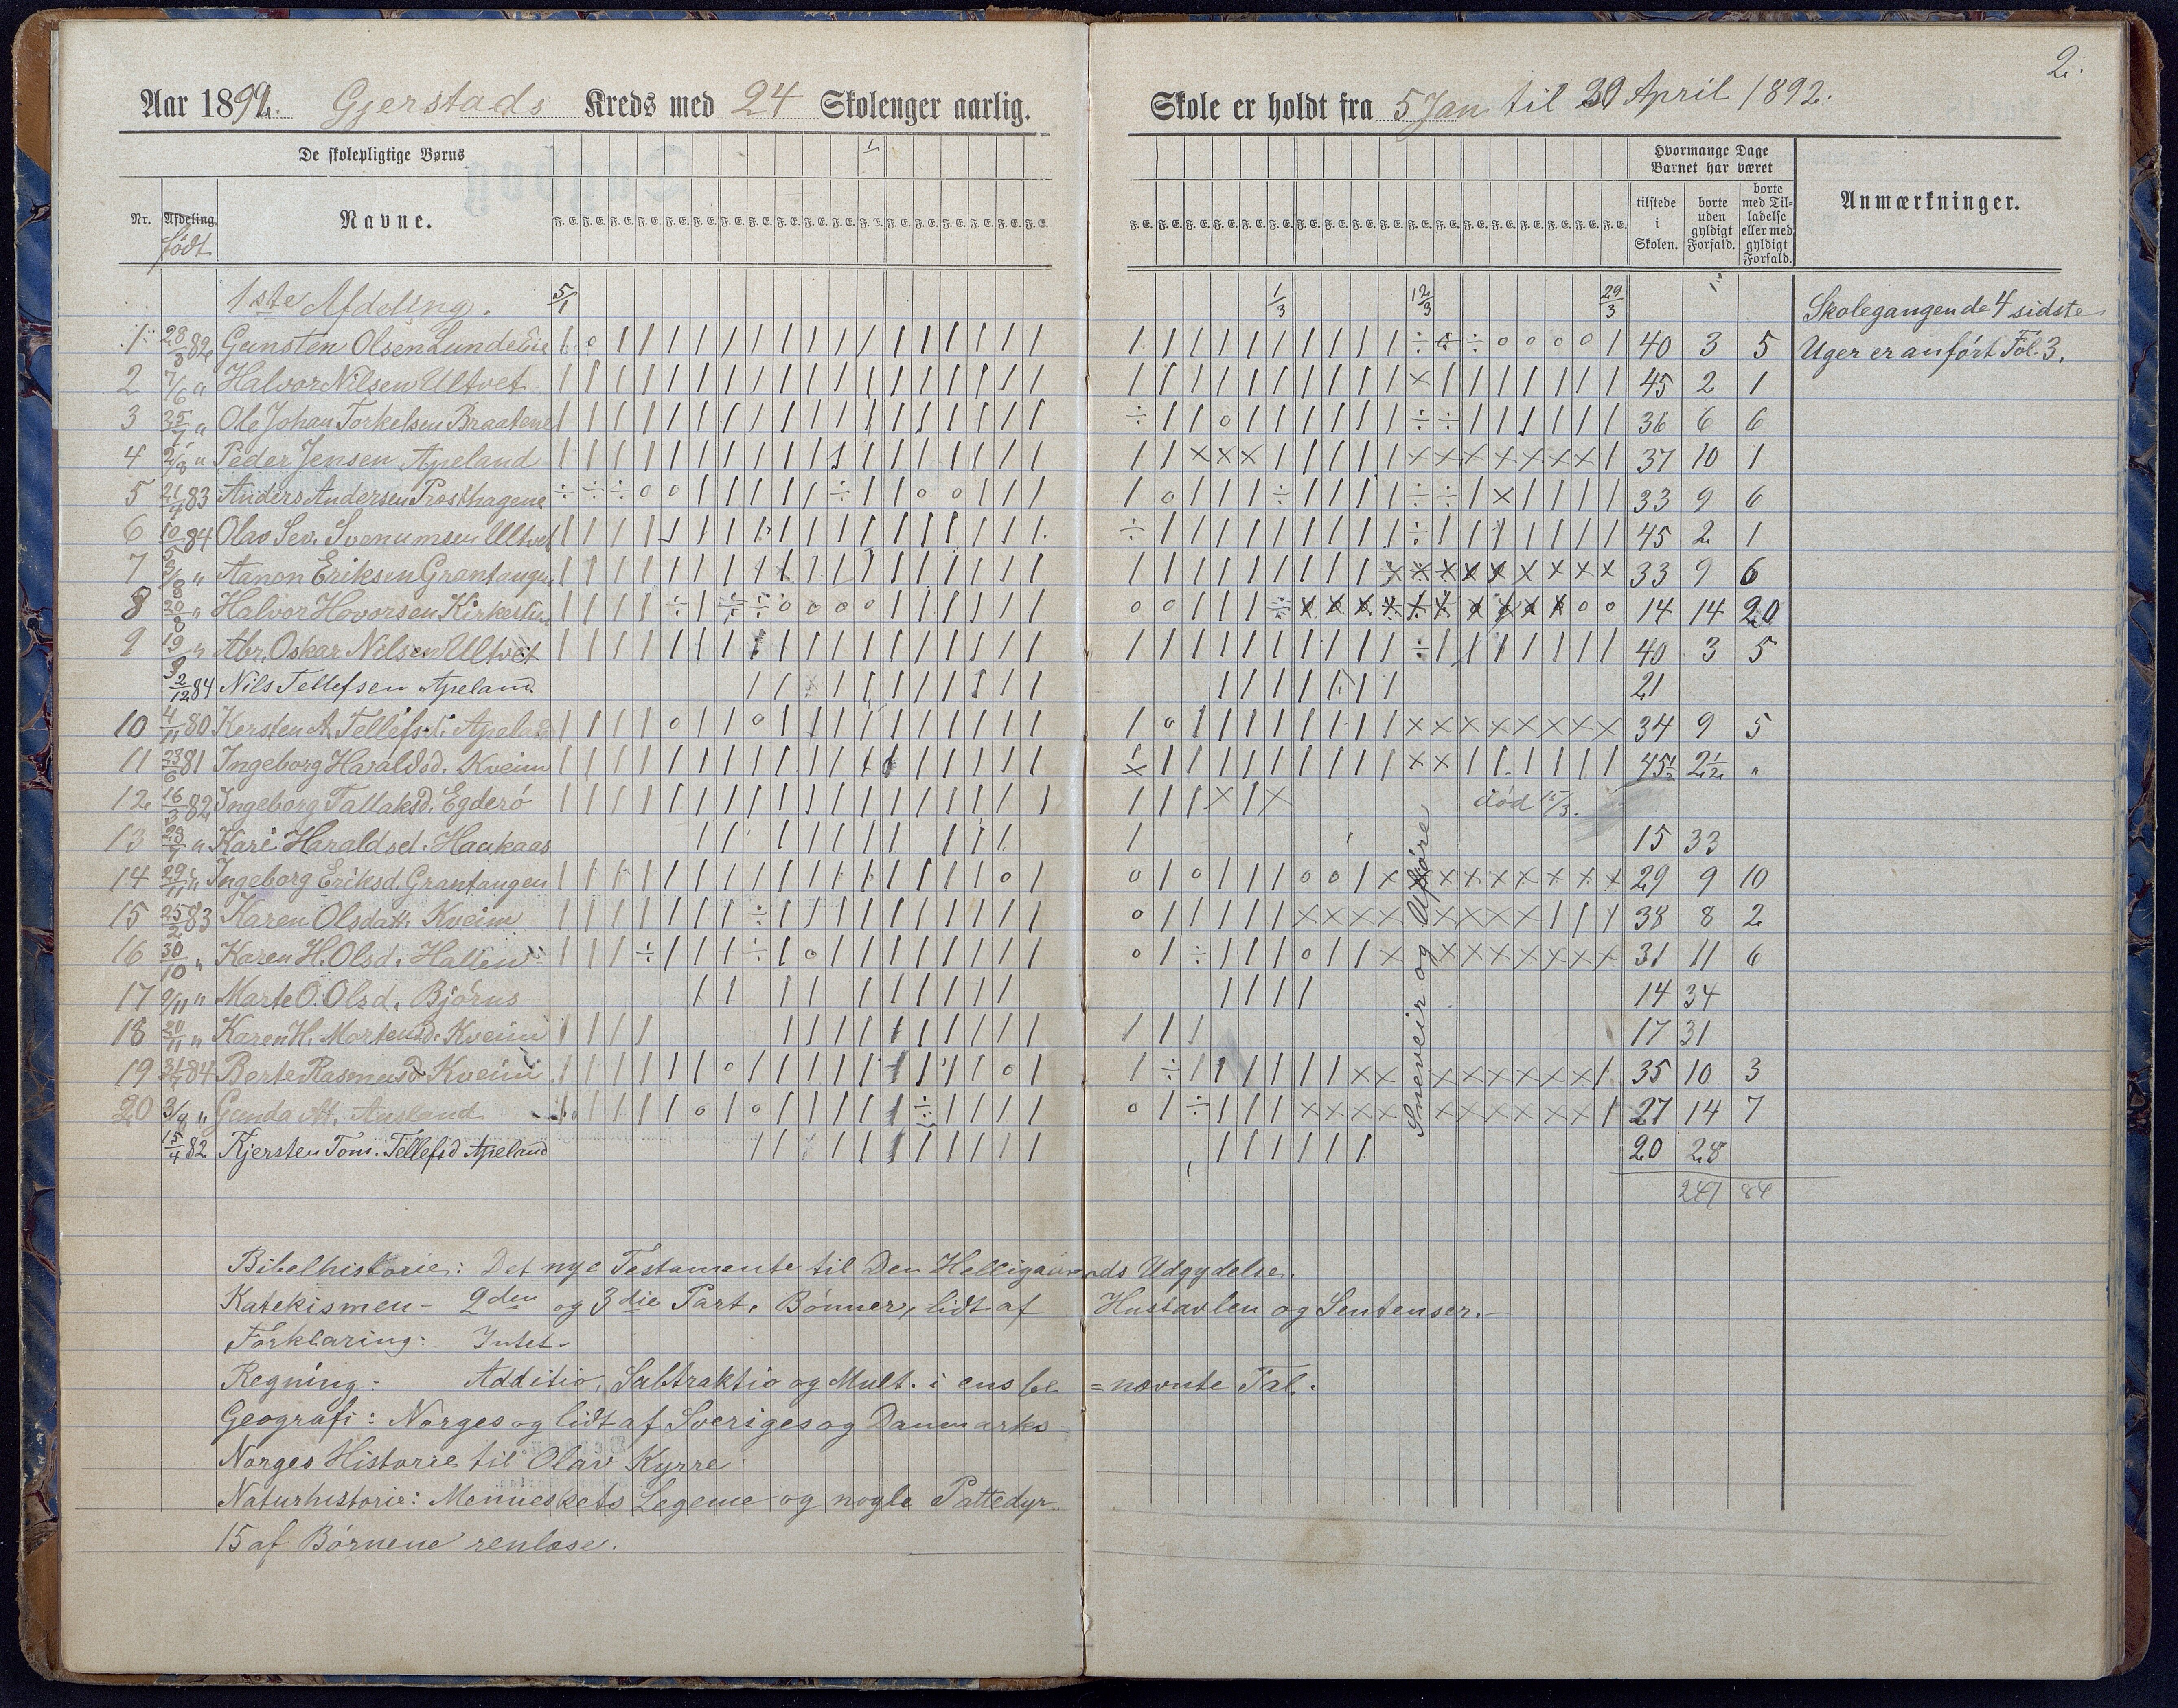 2.
Aar 1892. Gjerstads Kreds med 24 Skolenger aarlig. Skole er holdt fra 5 Jan til 30 April 1892.
De skolepligtige Børns
Hvormange Dage Barnet har været
Nr. Afdeling født Navne.
tilstede i Skolen. borte uden gyldigt Forfald. borte med Tilladelse eller med gyldigt Forfald. Anmærkninger.
1ste Afdeling. 5/1 1/3 12/3 29/3 Skolegangen de 4 sidste
1 28/3 82 Gunsten Olsen Lundelie 40 3 5 Uger er anført Fol. 3.
2 7/6 " Halvor Nilsen Ultvet 45 2 1
3 25/7 " Ole Johan Torkelsen Braatene 36 6 6
4 2/8 " Peder Jensen Apeland 37 10 1
5 21/4 83 Anders Andersen Prosthagene 33 9 6
6 10/5 84 Olav Sev. Svenumsen Ultvet 45 2 1
7 Aanon Eriksen Grantangen 33 9 6
8 20/8 " Halvor Hovorsen Kirkestu 14 14 20
9 19/9 " Abr. Oskar Nilsen Ultvet 40 3 5
2/12 84 Nils Tellefsen Apeland 21
10 4/11 80 Kersten A. Tellefsd. Apeland 34 9 5
11 23/6 81 Ingeborg Haraldsd. Kveim 45½ 2½ "
12 16/3 82 Ingeborg Tallaksd. Egderö død 15/3.
13 23/7 " Kari Haraldsd. Haukaas 15 33
14 29/11 " Ingeborg Eriksd. Grantangen 29 9 10
15 25/2 83 Karen Olsdatt. Kveim 38 8 2
16 30/10 " Karen H. Olsd. Hallin 31 11 6
17 9/11 " Marte O. Olsd. Bjórus 14 34
18 20/11 " Karen H. Mortensd. Kveim 17 31
19 31/7 84 Berte Rasmusd. Kveim 35 10 3
20 3/9 " Gunda At. Ausland 27 14 7
15/4 82 Kjersten Tom. Tellefsd Apeland 20 28
241 84
Sneveir og Uføre
Bibelhistorie: Det nye Testamente til Den Helligaands Udgydelse.
Katekismen – 2den og 3die Part, Bønner, lidt af Hustavlen og Sentenser. –
Forklaring: Intet –
Regning: Additio, Subtraktio og Mult. i ensbe=nævnte Tal.
Geografi: Norges og lidt af Sveriges og Danmarks –
Norges Historie til Olav Kyrre
Naturhistorie: Menneskets Legeme og nogle Pattedyr.
15 af Børnene renlæse.